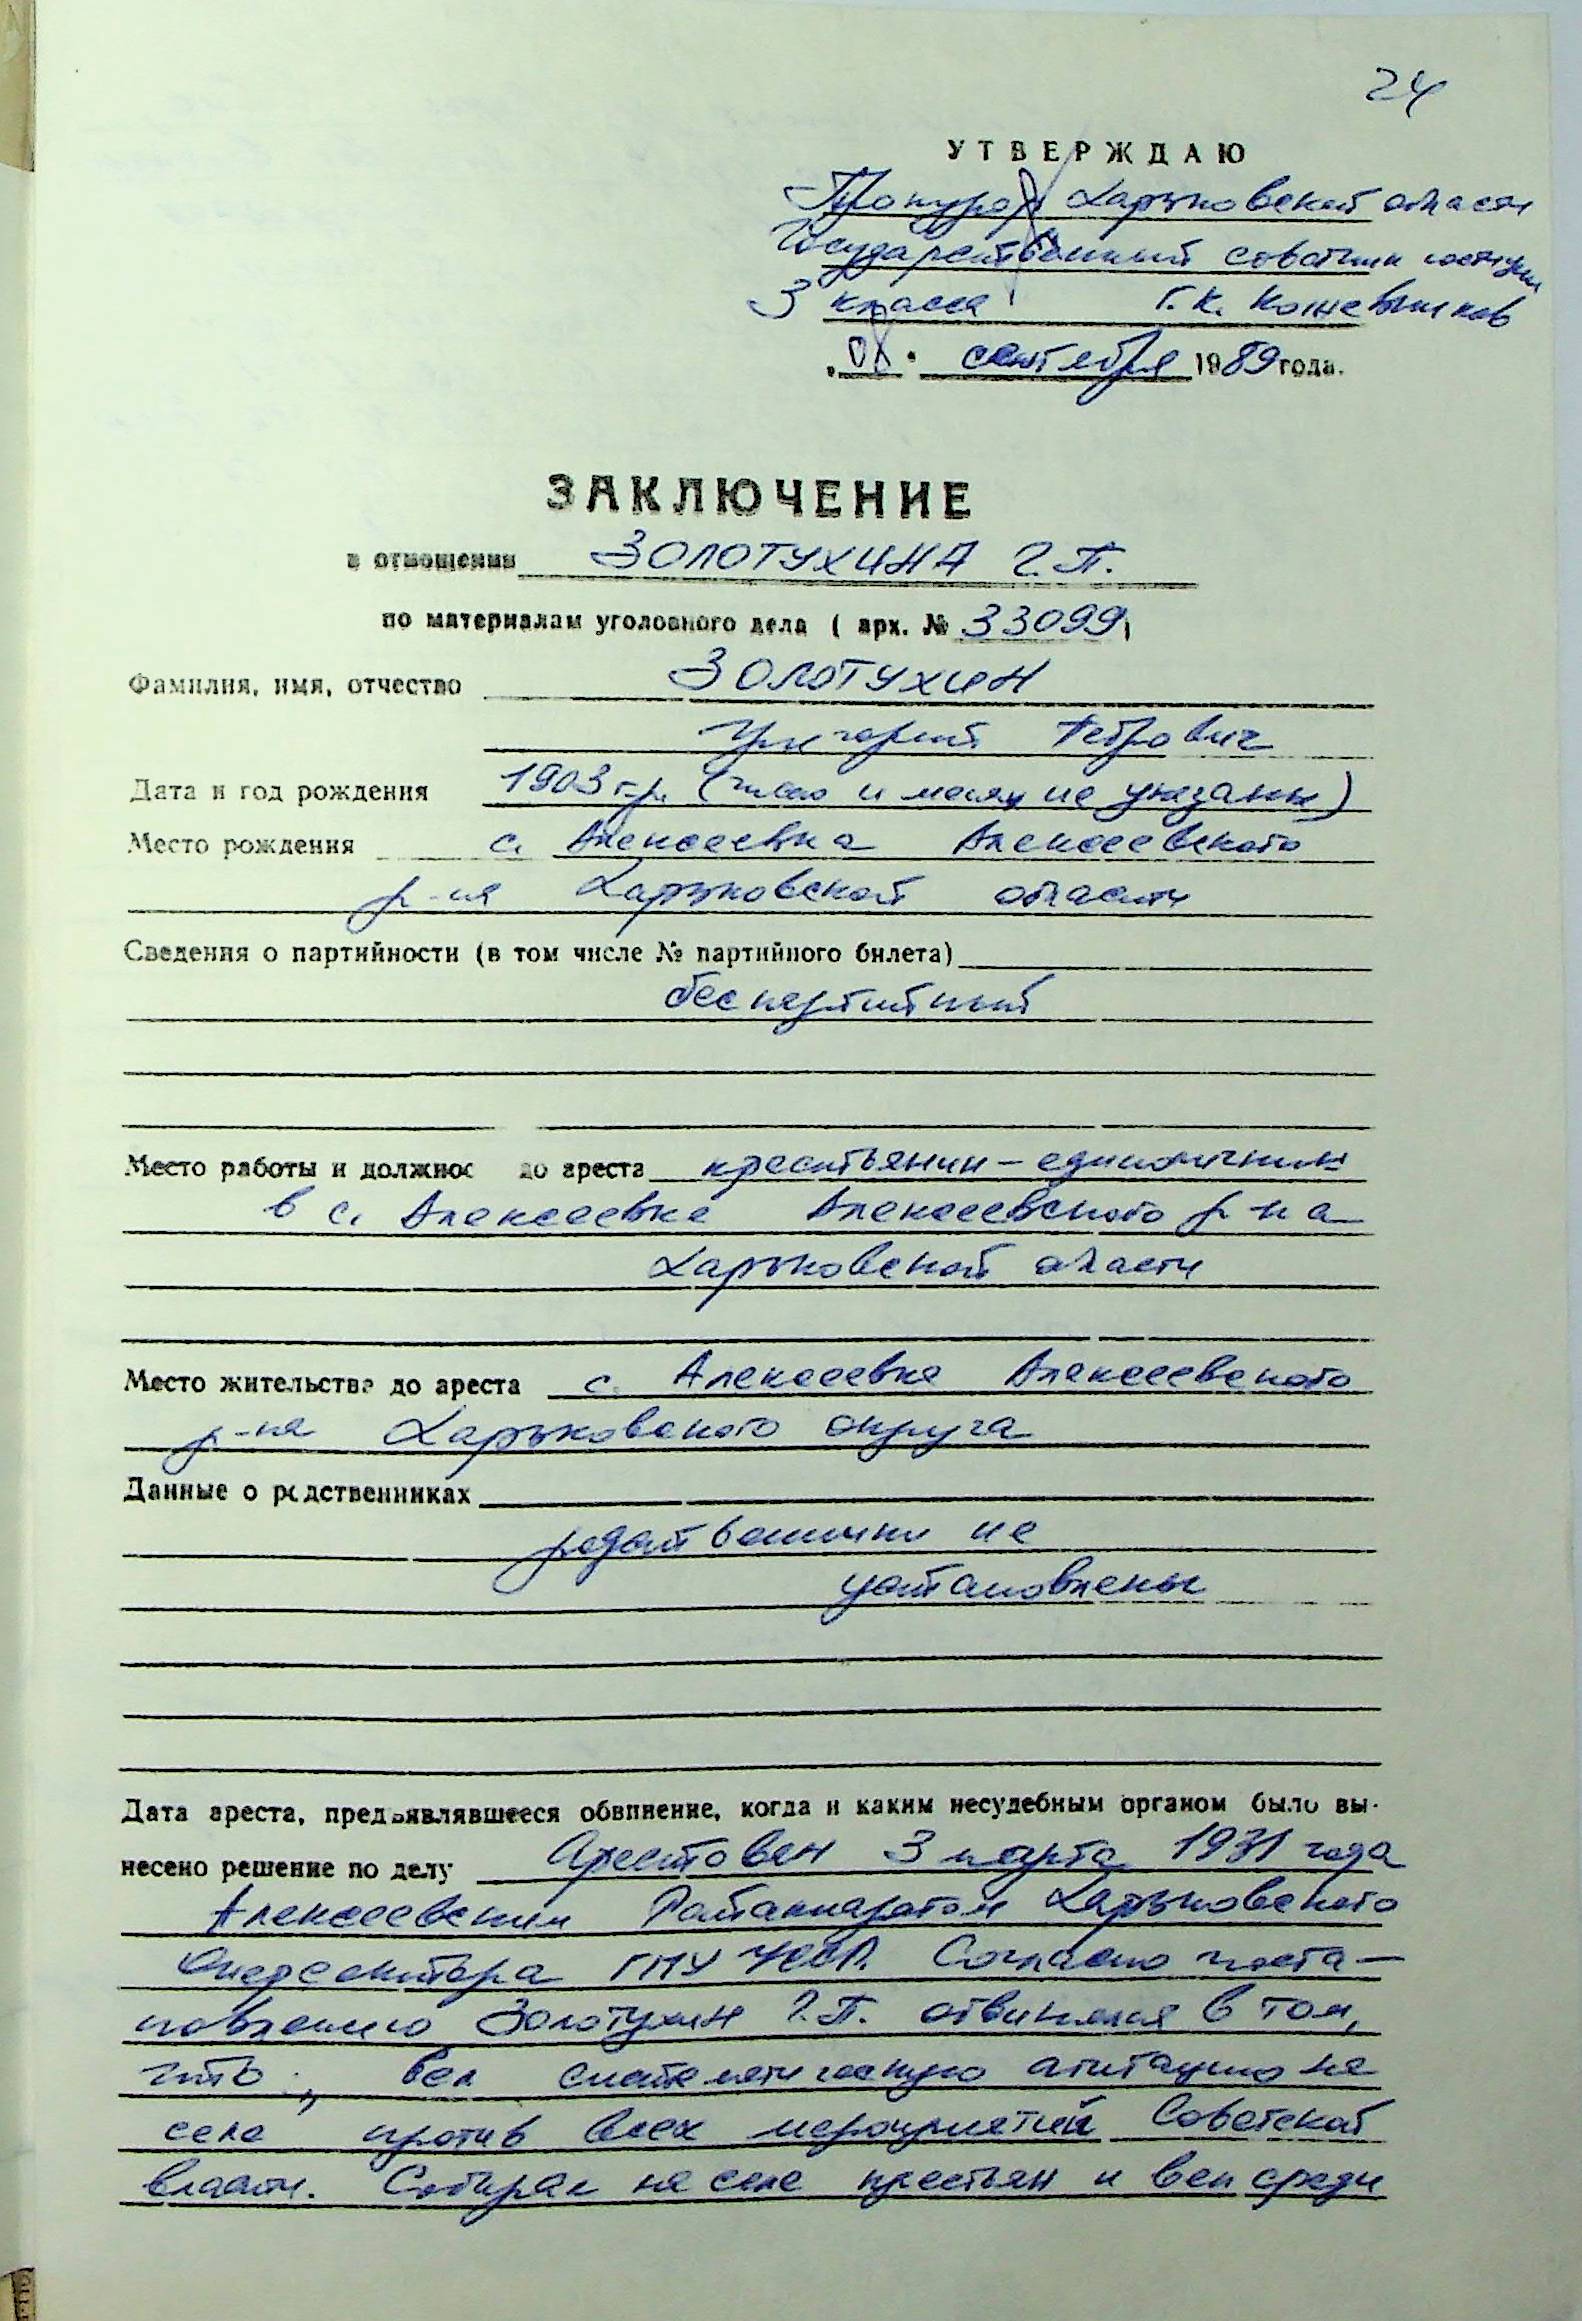 24
УТВЕРЖДАЮ
Прокурор Харьковской области
Государственный советник юстиции
3 класса Г.К. Кожевников
"08" сентября 1989 года.
ЗАКЛЮЧЕНИЕ
в отношении ЗОЛОТУХИНА Г.П.
по материалам уголовного дела ( арх. № 33099)
Фамилия, имя, отчество ЗОЛОТУХИН
Григорий Петрович
Дата и год рождения 1903 г.р. (число и месяц не указаны)
Место рождения с. Алексеевка Алексеевского
р-на Харьковской области
Сведения о партийности (в том числе № партийного билета)
беспартийный
Место работы и должнос до ареста крестьянин-единоличник
в с. Алексеевке Алексеевского р-на
Харьковской области
Место жительства до ареста с. Алексеевка Алексеевского
р-на Харьковского округа
Данные о родственниках
родственники не
установлены
Дата ареста, предъявлявшееся обвинение, когда и каким несудебным органом было вы-
несено решение по делу Арестован 3 марта 1931 года
Алексеевским Райаппаратом Харьковского
Оперсектора ГПУ УССР. Согласно поста-
новлению Золотухин Г.П. обвинялся в том,
что, вел систематическую агитацию на
селе против всех мероприятий Советской
власти. Собирал на селе крестьян и вел среди